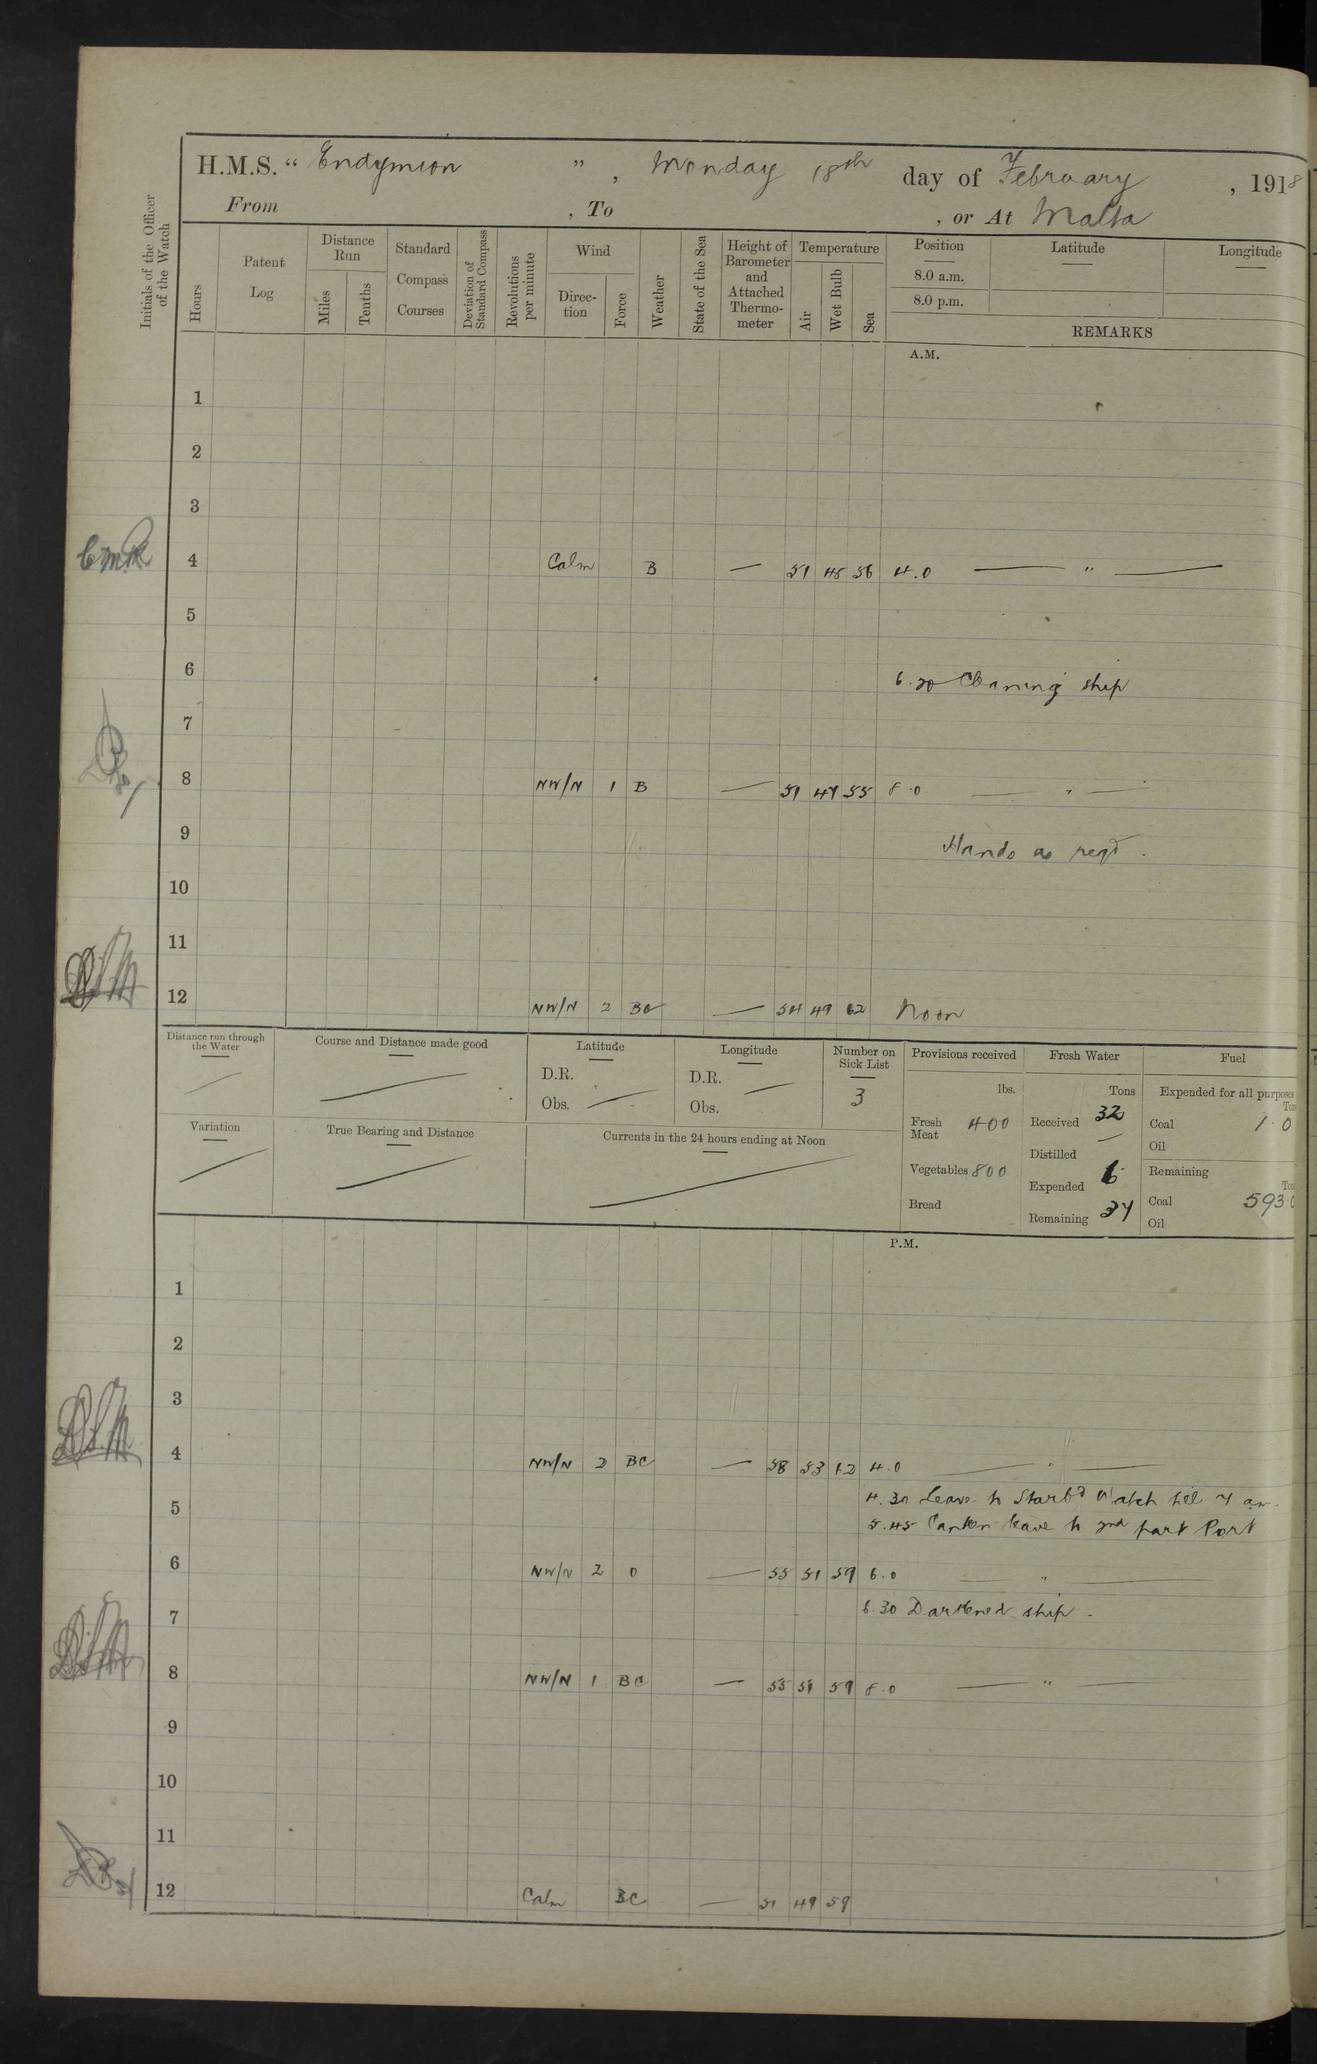 H.M.S. “ Endymion ” , Monday 18th day of February , 1918
From , To , or At Malta
Initials of the Officer of the Watch
Hours
Patent Log
Distance Run
Miles
Tenths
Standard Compass Courses
Deviation of Standard Compass
Revolutions per minute
Wind
Direc- tion
Force
Weather
State of the Sea
Height of Barometer and Attached Thermo- meter
Temperature
Air
Wet Bulb
Sea
Position Latitude Longitude
8.0 a.m.
8.0 p.m.
REMARKS
A.M.
1
2
3
4 Calm B — 51 48 56 4.0 — " —
5
6
6.30 Cleaning ship
7
8 NW/N 1 B — 51 49 55 8.0 — " —
9
Hands as reqd.
10
11
12 NW/N 2 BC — 54 49 62 Noon
Distance run through the Water
Course and Distance made good
Latitude
D.R.
Obs.
Longitude
D.R.
Obs.
Number on Sick List
3
Variation
True Bearing and Distance
Currents in the 24 hours ending at Noon
Provisions received
lbs.
Fresh Meat 400
Vegetables 800
Bread
Fresh Water
Tons
Received 32
Distilled —
Expended 6
Remaining 34
Fuel
Expended for all purposes
Coal 1.0
Oil
Remaining
Coal 593.0
Oil
P.M.
1
2
3
4 NW/N 2 BC — 58 53 62 4.0 — " —
4.30 Leave to Starbd Watch till 7 am.
5
5.45 Canteen leave to 2nd part Port
6 NW/N 2 O — 55 51 59 6.0 — " —
6.30 Darkened ship.
7
8 NW/N 1 BC — 55 51 59 8.0 — " —
9
10
11
12 Calm BC — 51 49 59